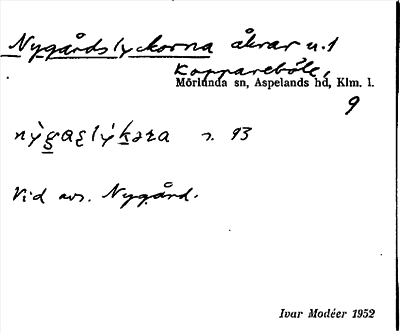 Nygårdslyckorna åkrar u. 1
Koppareböle,
Mörlunda sn, Aspelands hd, Klm. l.
9
s. 93
Vid avs. Nygård.
Ivar Modéer 1952